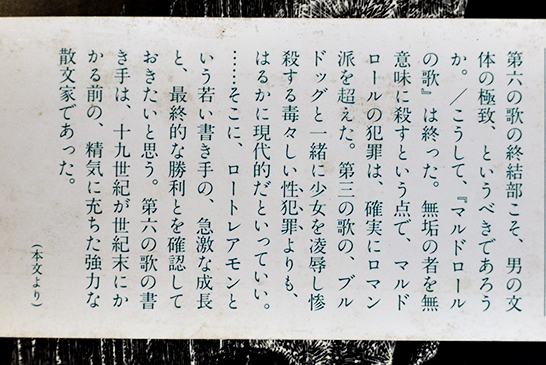 第六の歌の終結部こそ、男の文
体の極致、というべきであろう
か。／こうして、『マルドロール
の歌』は終った。無垢の者を無
意味に殺すという点で、マルド
ロールの犯罪は、確実にロマン
派を超えた。第三の歌の、ブル
ドッグと一緒に少女を凌辱し惨
殺する毒々しい性犯罪よりも、
はるかに現代的だといっていい。
……そこに、ロートレアモンと
いう若い書き手の、急激な成長
と、最終的な勝利とを確認して
おきたいと思う。第六の歌の書
き手は、十九世紀が世紀末にか
かる前の、精気に充ちた強力な
散文家であった。
（本文より）